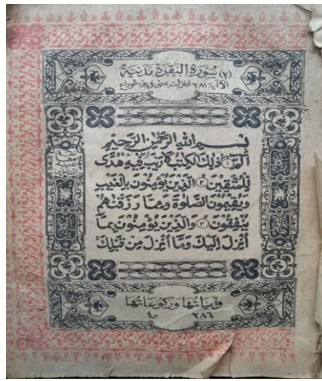 (٢) سورة البقرة مدنية
بسم الله الرحمن الرحيم
الم ذلك الكتب لا ريب فيه هدى
للمتقين الذين يؤمنون بالغيب
ويقيمون الصلوة ومما رزقنهم
ينفقون والذين يؤمنون بما
أنزل إليك وما أنزل من قبلك
واياتها وركوعاتها
٢٨٦ ٤٠